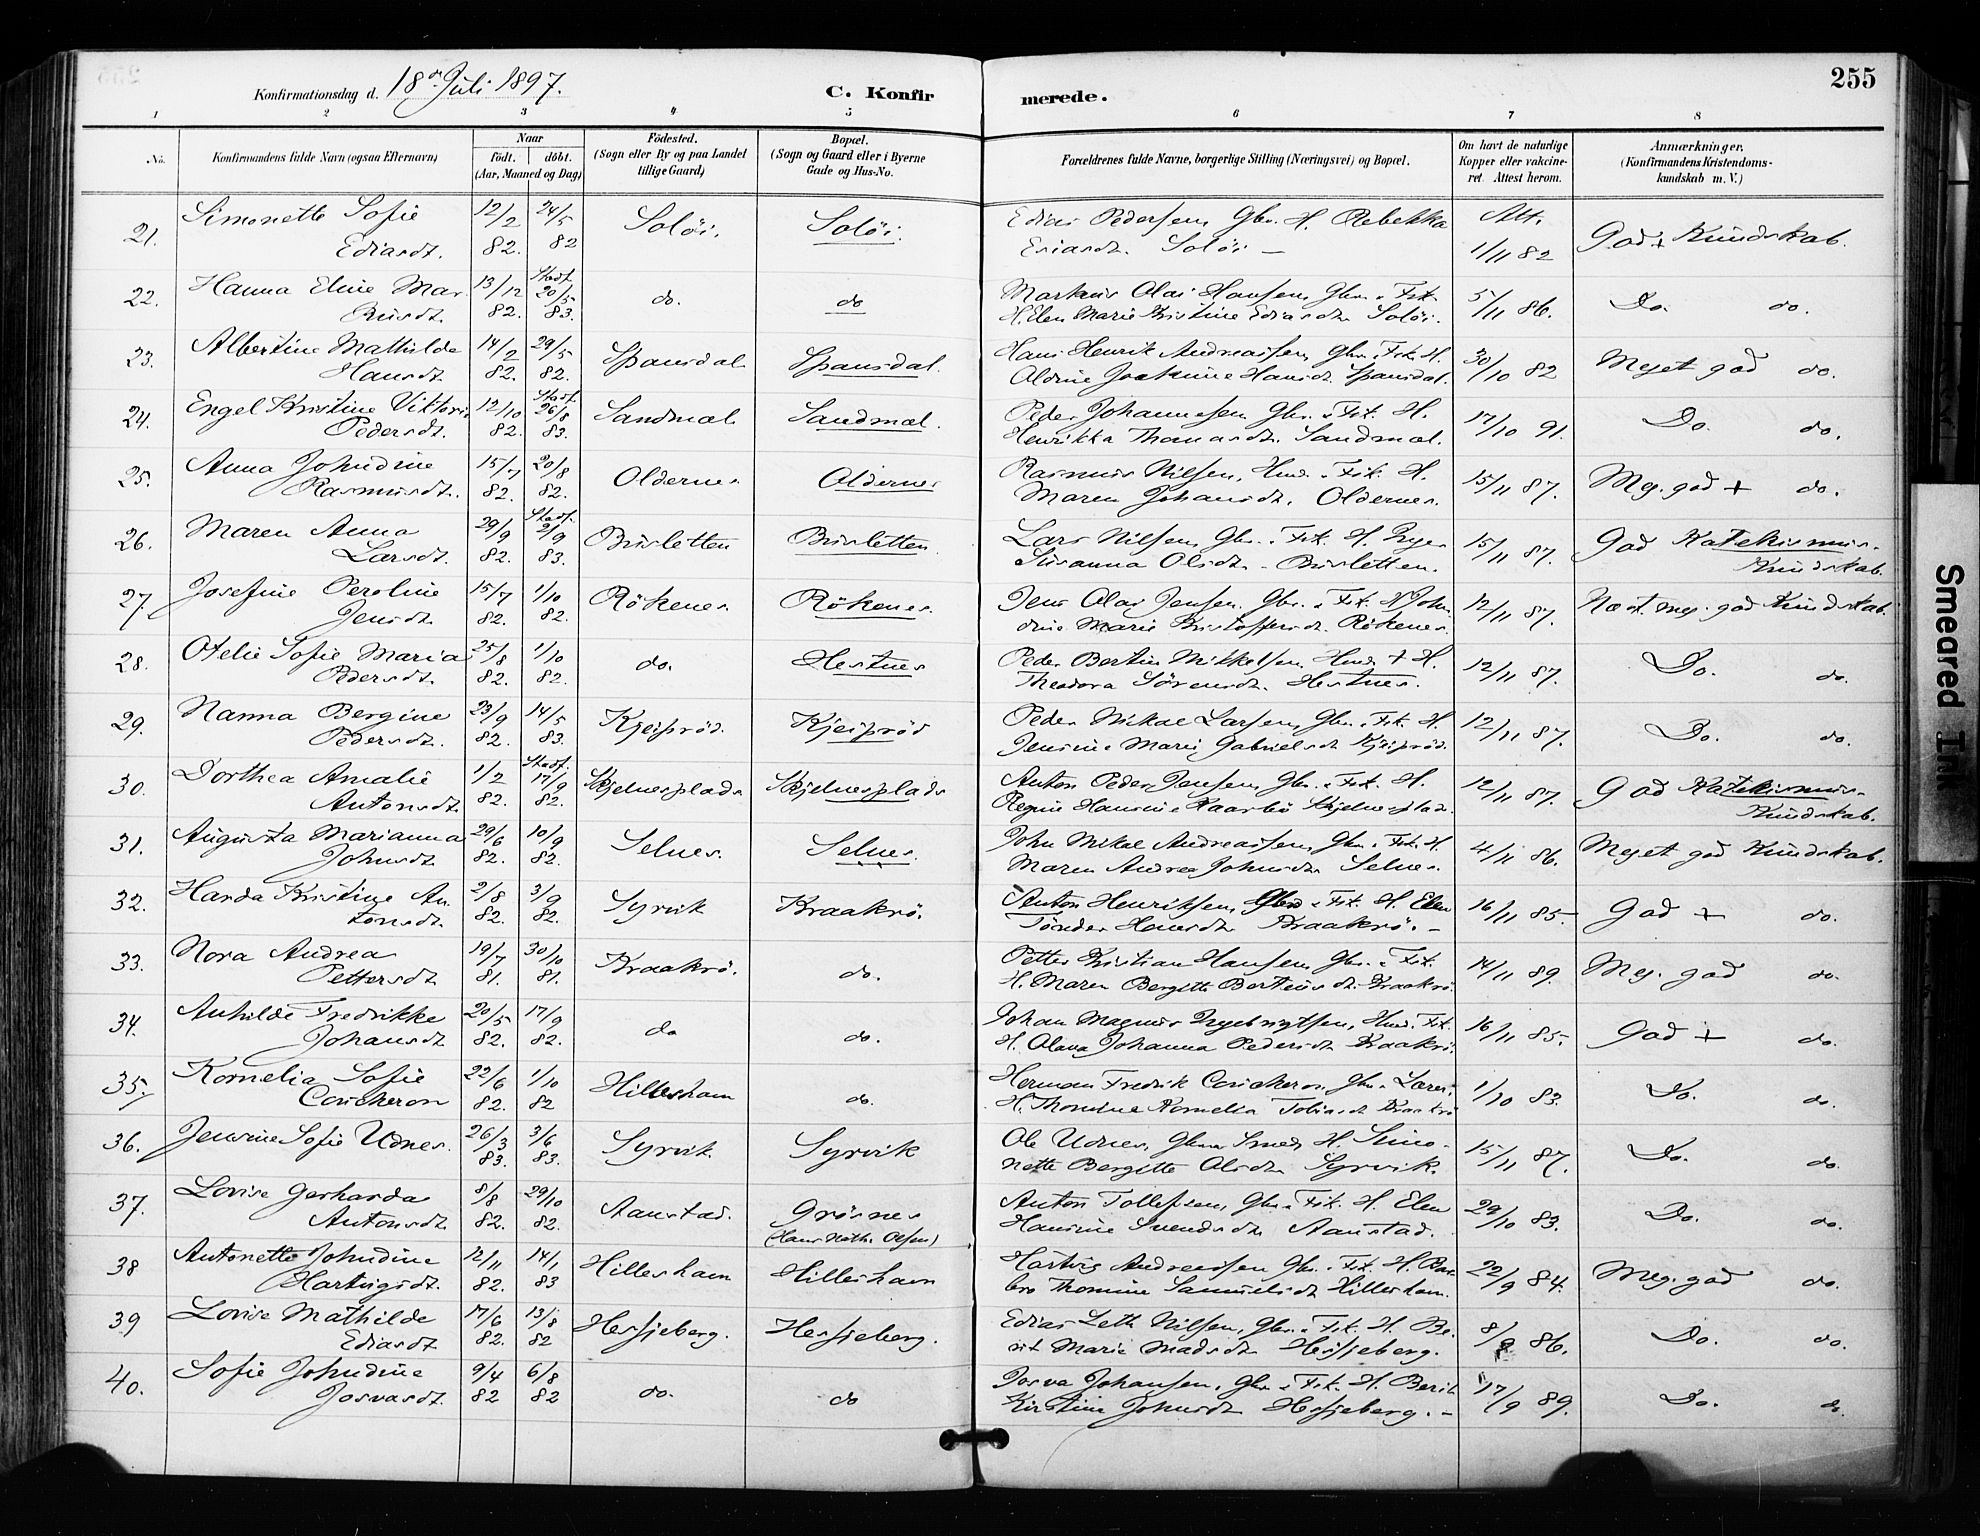 255
Konfirmationsdag d. 18de Juli 1897. C. Konfirmerede.
1 2 3 4 5 6 7 8
No. Konfirmandens fulde Navn (ogsaa Efternavn)
Naar født. døbt. (Aar, Maaned og Dag)
Fødested. (Sogn eller By og paa Landet tillige Gaard)
Bopæl. (Sogn og Gaard eller i Byerne Gade og Hus-No.
Forældrenes fulde Navne, borgerlige Stilling (Næringsvei) og Bopæl.
Om havt de naturlige Kopper eller vakcineret. Attest herom.
Anmærkninger. (Konfirmandens Kristendomskundskab m. V.)
21. Simonette Sofie 12/2 24/5 Soløi. Soløi. Edias Pedersen, Gbr. H. Rebekka Att. God + Kundskab.
Ediasdt. 82. 82 Esiasdt. Soløi — 1/11 82
22. Hanna Eline Mar- 13/12 Stadf. 20/5 do. do Markus Olai Hansen, Gbr. & Fsk. 5/11 86. Do. do.
kusdt. 82. 83. H. Elen Marie Kristine Ediasdt. Soløi.
23. Albertine Mathilde 14/2 29/5 Spansdal Spansdal. Hans Henrik Andreassen, Gbr. & Fsk. H. 30/10 82 Meget god do.
Hansdt. 82. 82. Aldine Joakime Hansdt. Spansdal.
24. Engel Kristine Viktoria 12/10 Stadf. 26/8 Sandmæl Sandmæl. Peder Johannesen Gbr. & Fsk. H. 17/10 91. Do. do.
Pedersdt. 82. 83. Henrikka Thomasdt. Sandmæl.
25. Anna Johndine 15/7 20/8 Oldernes Oldernes Rasmus Nilsen, Hmd. & Fsk. H. 15/11 87. Meg. god + do.
Rasmusdt. 82. 82. Maren Johansdt. Oldernes.
26. Maren Anna 29/9 Stadf. 2/9 Brusletten Brusletten Lars Nilsen, Gbr. & Fsk. H. Inger 15/11 87. God Katekismus-
Larsdt. 82. 83. Susanna Olsdt. Brusletten. Kundskab.
27. Josefine Peroline 15/7 1/10 Røkenes Røkenes. Jens Olai Jensen. Gbr. & Fsk. H. John- 12/11 87. Næst. meg. god Kundskab.
Jensdt. 82. 82. dine Marie Kristoffersdt. Røkenes.
28. Otelie Sofie Maria 25/8 1/10 do. Hestnes Peder Bertin Mikkelsen, Hmd. + H. 12/11 87. Do. do.
Pedersdt. 82. 82. Theodora Sørensdt. Hestnes.
29. Nanna Bergine 23/9 14/5 Kjeiprød. Kjeiprød Peder Mikal Larsen, Gbr. & Fsk. H. 12/11 87. Do. do.
Pedersdt. 82. 83. Jensine Marie Gabrielsdt. Kjeiprød.
30. Dorthea Amalie 1/2 Stadf. 17/9 Skjelnesplads Skjelnesplads Anton Peder Jensen, Gbr. & Fsk. H. 12/11 87. God Katekismus-
Antonsdt. 82. 82. Regine Hansine Kaarbø Skjelnesplad. Kundskab.
31. Augusta Marianna 29/6 10/9 Selnes. Selnes. John Mikal Andreassen, Gbr. & Fsk. H. 4/11 86. Meget god Kundskab.
Johnsdt. 82. 82. Maren Andrea Johnsdt. Selnes.
32. Harda Kristine An- 2/8 3/9 Syrvik Kraakrø. Anton Henriksen, Gbr. & Fsk. H. Elen 16/11 85. God + do.
tonsdt. 82. 82. Tønder Hansdt. Kraakrø. —
33. Nora Andrea 19/7 30/10 Kraakrø. do. Petter Kristian Hansen, Gbr. & Fsk. 14/11 89. Meg. god do.
Pettersdt 81. 81. H. Maren Bergitte Berteusdt. Kraakrø.
34. Anhilde Fredrikke 20/5 17/9 do do. Johan Magnus Ingebrigtsen, Hmd. Fsk. 16/11 85. God + do.
Johansdt 82. 82. H. Olava Johanna Pedersdt Kraakrø.
35. Kornelia Sofie 22/6 1/10 Hillesham do. Herman Fredrik Coucheron, Gbr. & Lærer. 1/10 83. Do. do.
Coucheron 82. 82 H. Thomine Kornelia Tobiasdt. Kraakrø
36. Jensine Sofie Udnes. 26/3 3/6 Syrvik. Syrvik Ole Udnes, Gbr. & Smed, H. Simo- 15/11 87. Do. do.
83. 83. nette Bergitte Olsdt. Syrvik.
37. Lovise Gerharda 8/8 29/10 Aanstad. Grøsnes Anton Tollefsen, Gbr. & Fsk. H. Elen 29/10 83. Do. do.
Antonsdt 82. 82. (Hans Math. Olsen) Hansine Svendsdt. Aanstad.
38 Antonette Johndine 12/11 14/1 Hillesham Hillesham Hartvig Andreassen Gbr. & Fsk. H. Bar- 22/9 84. Meg. god do.
Hartvigsdt. 82. 83 bro Thomine Samuelsdt Hillesham.
39 Lovise Mathilde 17/6 13/8 Hessjeberg. Hessjeberg. Edias Zeth Nilsen, Gbr. & Fsk. H. Be- 8/9 86. Do. do.
Ediasdt 82. 82 rit Marie Madsdt. Hessjeberg.
40. Sofie Johndine 9/4 6/8 do. do Josva Johansen, Gbr. & Fsk. H. Berit 17/9 89. Do. do
Josvasdt. 82 82 Kirstine Johnsdt Hessjeberg. —
Smeared Ink